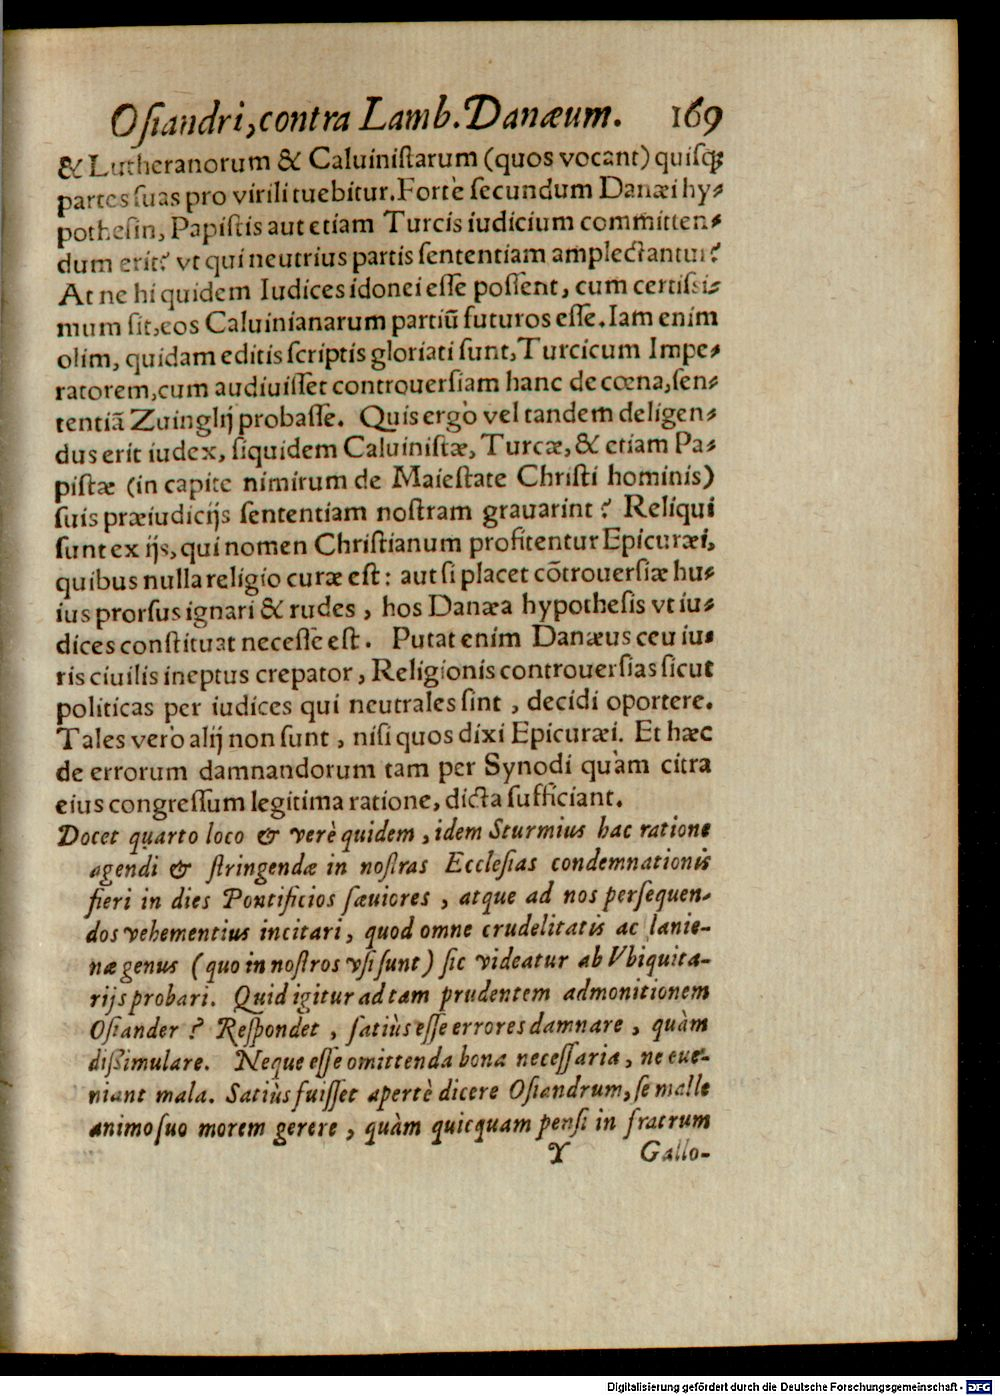 Osiandri, contra Lamb. Danæum. 169
& Lutheranorum & Caluinistarum (quos vocant) quisq;
partes suas pro virili tuebitur. Fortè secundum Danæi hy-
pothesin, Papistis aut etiam Turcis iudicium committen-
dum erit? vt qui neutrius partis sententiam amplectantur?
At ne hi quidem Iudices idonei esse possent, cum certissi-
mum sit, eos Caluinianarum partiū futuros esse. Iam enim
olim, quidam editis scriptis gloriati sunt, Turcicum Impe-
ratorem, cum audiuisset controuersiam hanc de cœna, sen-
tentiā Zuinglij probasse. Quis ergò vel tandem deligen-
dus erit iudex, siquidem Caluinistæ, Turcæ, & etiam Pa-
pistæ (in capite nimirum de Maiestate Christi hominis)
suis præiudicijs sententiam nostram grauarint? Reliqui
sunt ex ijs, qui nomen Christianum profitentur Epicuræi,
quibus nulla religio curæ est: aut si placet cōtrouersiæ hu-
ius prorsus ignari & rudes, hos Danæa hypothesis vt iu-
dices constituat necesse est. Putat enim Danæus ceu iu-
ris ciuilis ineptus crepator, Religionis controuersias sicut
politicas per iudices qui neutrales sint, decidi oportere.
Tales verò alij non sunt, nisi quos dixi Epicuræi. Et hæc
de errorum damnandorum tam per Synodi quàm citra
eius congressum legitima ratione, dicta sufficiant.
Docet quarto loco & verè quidem, idem Sturmius hac ratione
agendi & stringendæ in nostras Ecclesias condemnationis
fieri in dies Pontificios sæuiores, atque ad nos persequen-
dos vehementius incitari, quod omne crudelitatis ac lanie-
næ genus (quo in nostros vsi sunt) sic videatur ab Vbiquita-
rijs probari. Quid igitur ad tam prudentem admonitionem
Osiander? Respondet, satiùs esse errores damnare, quàm
dißimulare. Neque esse omittenda bona necessaria, ne eue-
niant mala. Satiùs fuisset apertè dicere Osiandrum, se malle
animo suo morem gerere, quàm quicquam pensi in fratrum
Y Gallo-
Digitalisierung gefördert durch die Deutsche Forschungsgemeinschaft - DFG